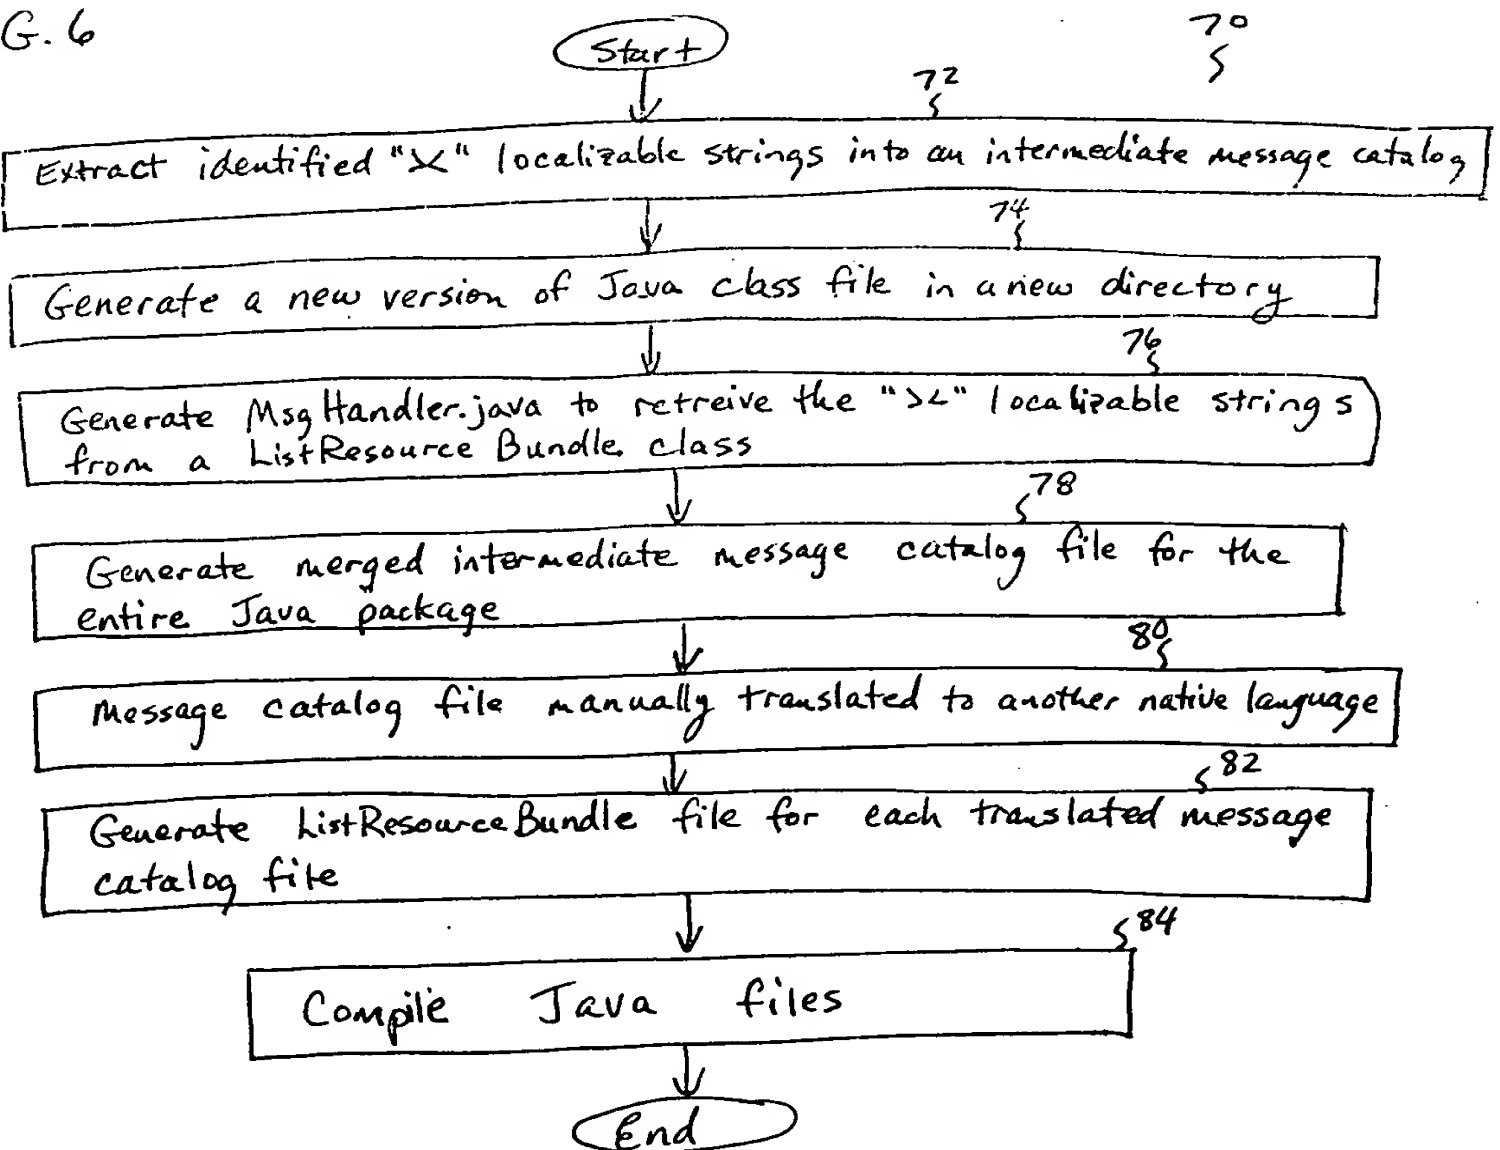 G. 6
70
Start
72
Extract identified "><" localizable strings into an intermediate message catalog
74
Generate a new version of Java class file in a new directory
76
Generate MsgHandler.java to retreive the "><" localizable strings
from a ListResource Bundle class
78
Generate merged intermediate message catalog file for the
entire Java package
80
Message catalog file manually translated to another native language
82
Generate ListResourceBundle file for each translated message
catalog file
84
Compile Java files
End